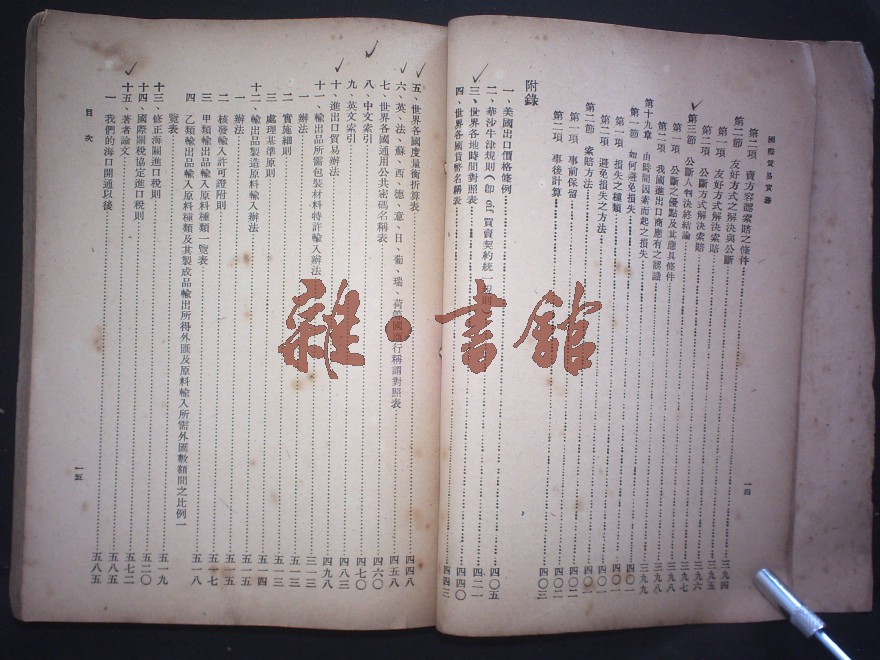 國際貿易實務
一四
第二項 賣方容認索賠之條件 三九四
第二節 友好方式之解決與公斷 三九五
第一項 友好方式解決索賠 三九五
第二項 公斷方式解決索賠 三九六
第三節 公斷人判決終結論 三九七
第一項 公斷之優點及其應具條件
第二項 我國進出口商應有之認識 三九八
第十九章 由時間因素而起之損失 三九九
第一節 如何避免損失 四〇一
第一項 損失之種類 四〇一
第二項 避免損失之方法
第二節 索賠方法
第一項 事前保留 四〇二
第二項 事後計算 四〇三
附錄
一、美國出口價格條例
二、華沙牛津規則（即 cif 買賣契約統一規則） 四〇五
三、世界各地時間對照表 四二一
四、世界各國貨幣名稱表 四四〇
四四三
五、世界各國度量衡折算表 四四八
六、英、法、蘇、西、德、意、日、葡、瑞、荷等國商行稱謂對照表 四五八
七、世界各國通用公共密碼名稱表 四六〇
八、中文索引 四七〇
九、英文索引 四八三
十、進出口貿易辦法 四九八
十一、輸出品所需包裝材料特許輸入辦法
一 辦法 五一三
二 實施細則 五一三
三 處理基準原則 五一四
十二、輸出品製造原料輸入辦法
一 辦法 五一五
二 核發輸入許可證附則 五一五
三 甲類輸出品輸入原料種類一覽表 五一七
四 乙類輸出品輸入原料種類及其製成品輸出所得外匯及原料輸入所需外匯數額間之比例一
覽表 五一八
十三、修正海關進口稅則 五一九
十四、國際關稅協定進口稅則 五二〇
十五、著者論文 五七二
一 我們的海口開通以後 五八五
目次
一五
雜·書館